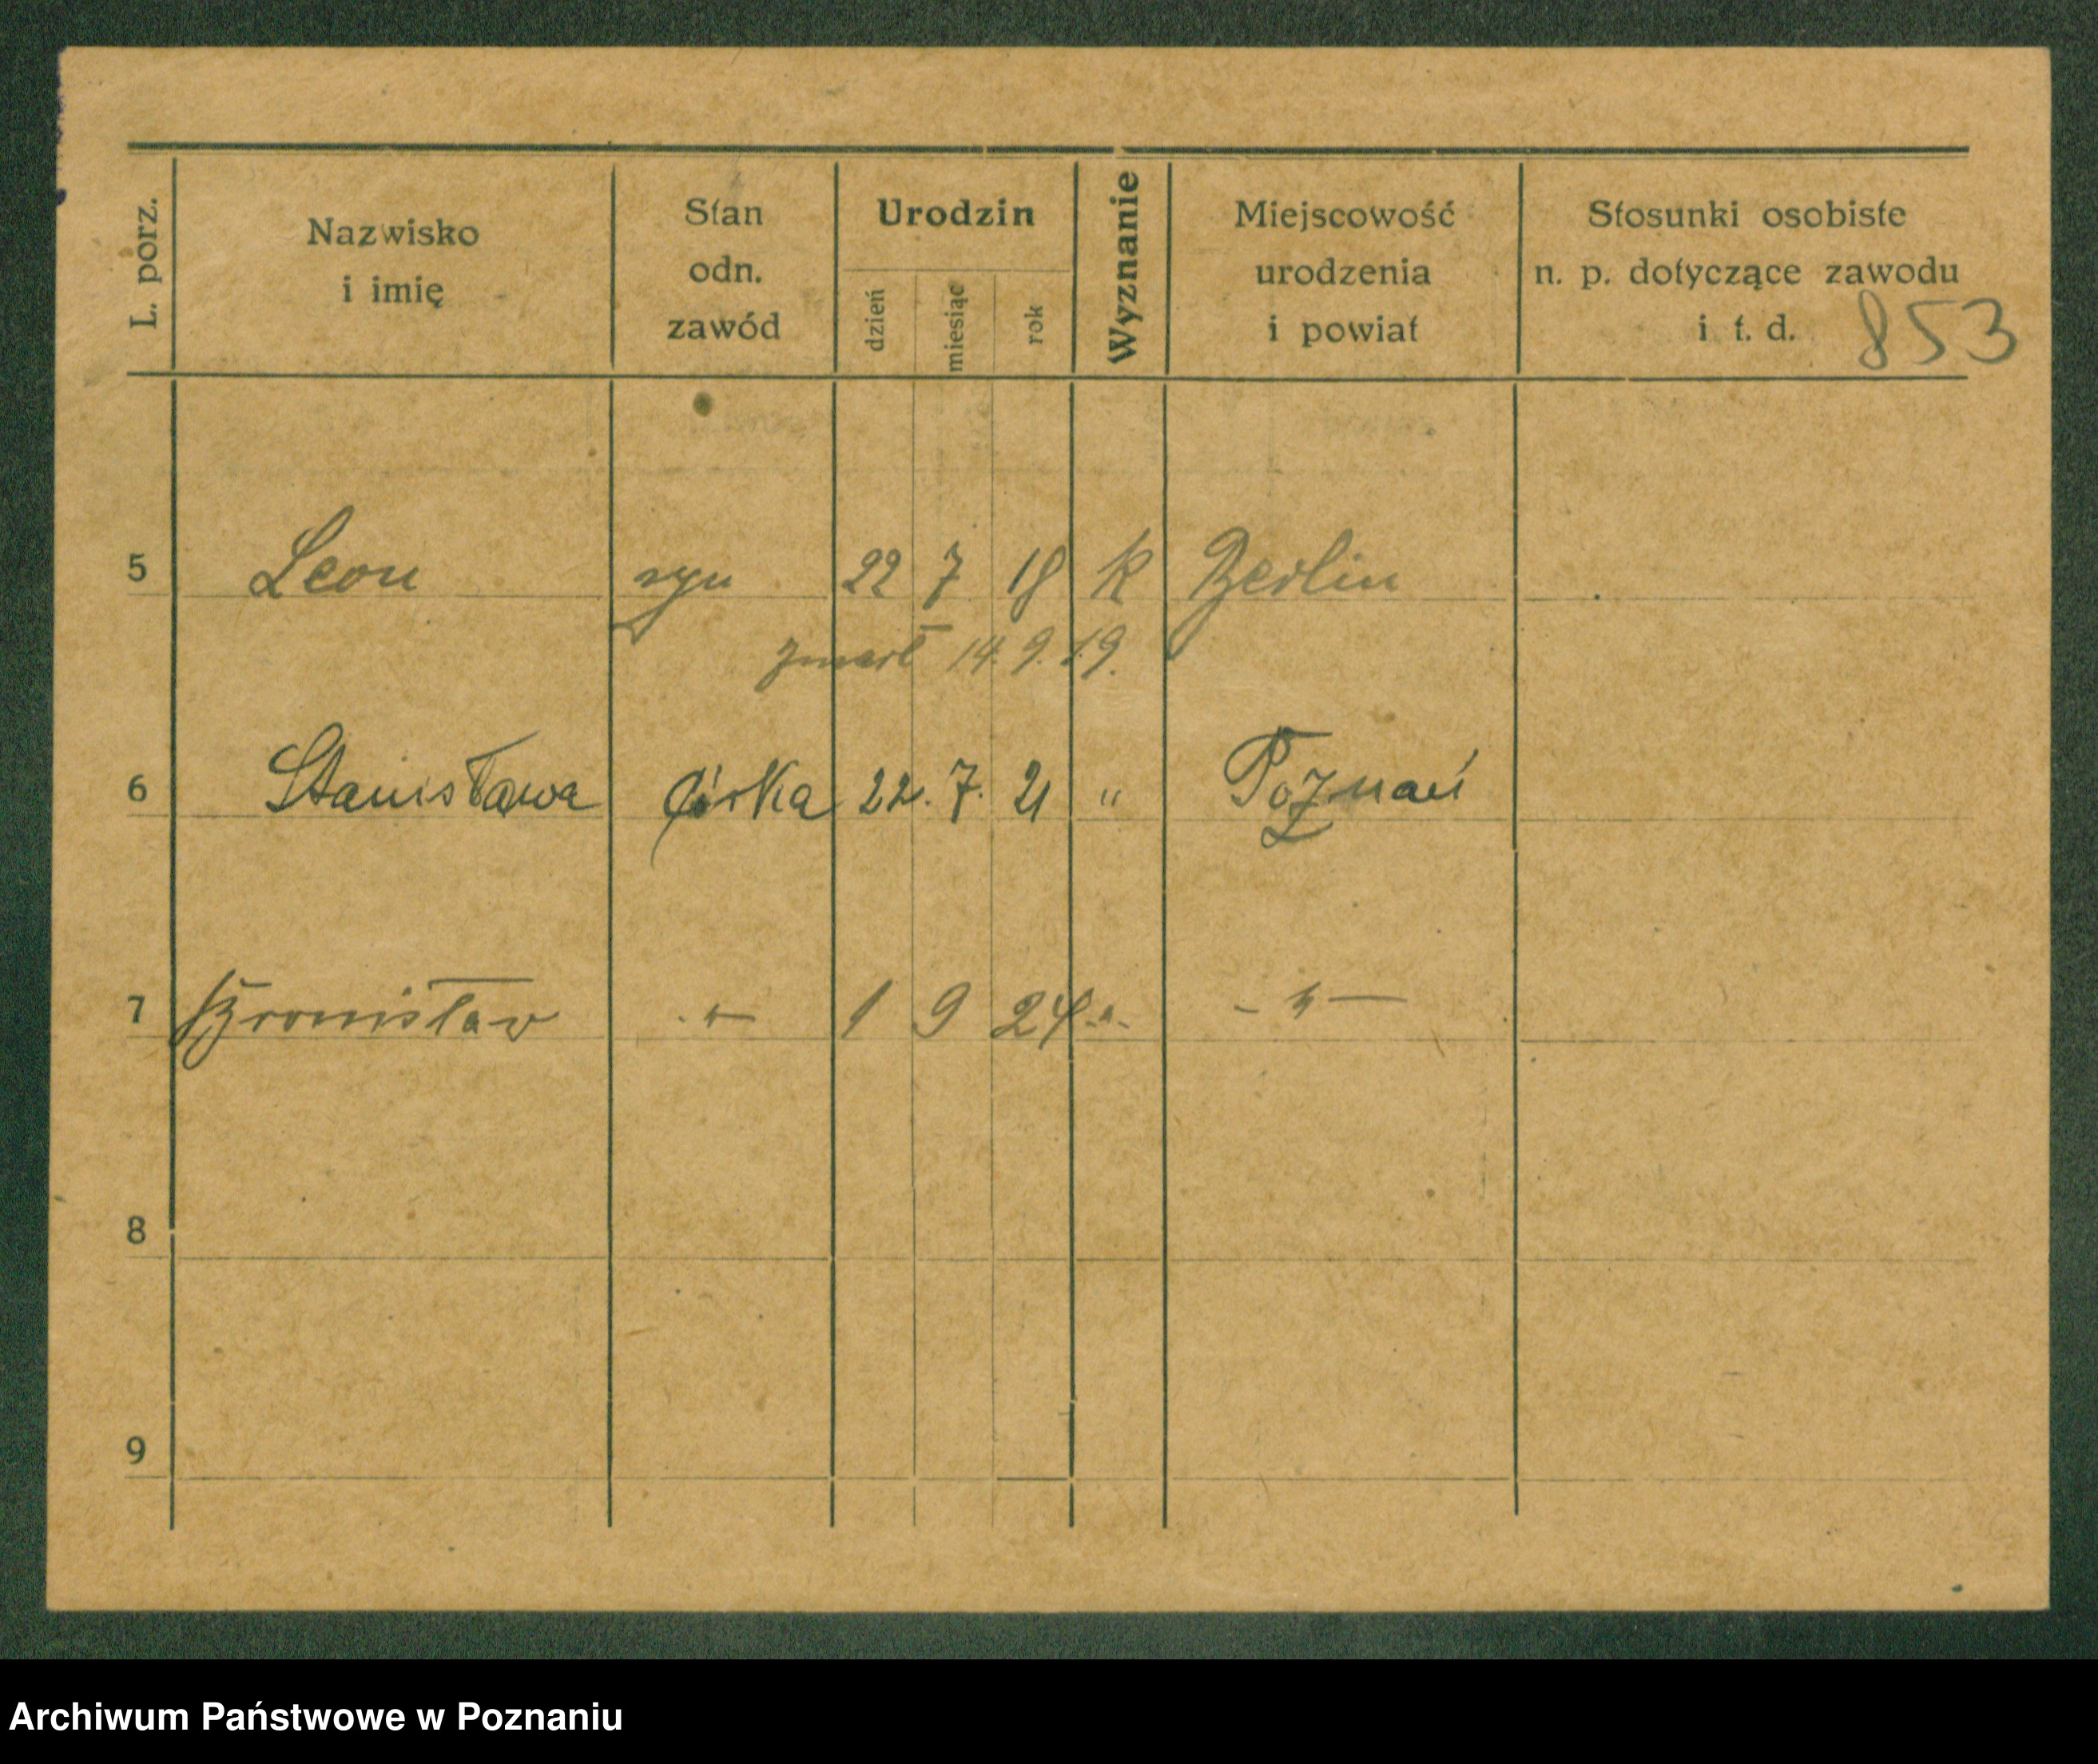 L. porz. Nazwisko i imię Stan odn. zawód Urodzin dzień miesiąc rok Wyznanie Miejscowość urodzenia i powiat Stosunki osobiste n. p. dotyczące zawodu i t. d.
853
5 Leon syn 22 7 18 k Berlin
zmarł 14. 9. 19.
6 Stanisława córka 22. 7. 21 " Poznań
7 Bronisław - " - 1 9 24 - " - - " -
8
9
Archiwum Państwowe w Poznaniu